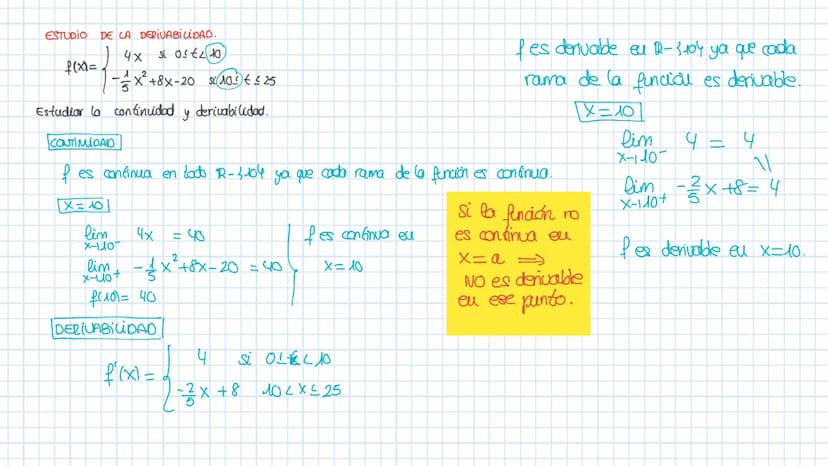 ESTUDIO DE LA DERIVABILIDAD.
f(x) = { 4x si 0≤t<10
-1/5 x² + 8x - 20 si 10≤t≤25
Estudiar la continuidad y derivabilidad.
CONTINUIDAD
f es continua en todo R-{10} ya que cada rama de la función es continua.
x=10
lim x→10⁻ 4x = 40
lim x→10⁺ -1/5 x² + 8x - 20 = 40
f(10) = 40
f es continua en
x=10
DERIVABILIDAD
f'(x) = { 4 si 0≤x<10
-2/5 x + 8 10<x≤25
si la función no
es continua en
x=a ⟹
NO es derivable
en ese punto.
f es derivable en R-{10} ya que cada
rama de la función es derivable.
x=10
lim x→10⁻ 4 = 4
||
lim x→10⁺ -2/5 x + 8 = 4
f es derivable en x=10.